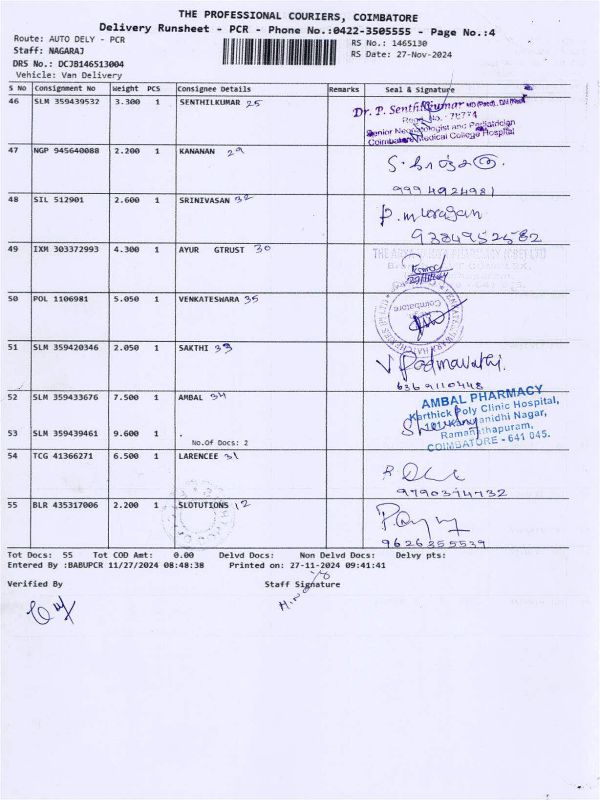 THE PROFESSIONAL COURIERS, COIMBATORE
Delivery Runsheet - PCR - Phone No.:0422-3505555 - Page No.:4
Route: AUTO DELY - PCR
RS No.: 1465130
Staff: NAGARAJ
RS Date: 27-Nov-2024
DRS No.: DCJB146513004
Vehicle: Van Delivery
S No Consignment No Weight PCS Consignee Details Remarks Seal & Signature
46 SLM 359439532 3.300 1 SENTHILKUMAR 25
Dr. P. Senthilkumar
Senior Neonatologist and Pediatrician
Coimbatore Medical College Hospital
47 NGP 945640088 2.200 1 KANANAN 29
9994924981
48 SIL 512901 2.600 1 SRINIVASAN 32
P. muragan
9384952582
49 IXM 303372993 4.300 1 AYUR GTRUST 30
50 POL 1106981 5.050 1 VENKATESWARA 35
51 SLM 359420346 2.050 1 SAKTHI 33
V Padmavathi.
6369110448
52 SLM 359433676 7.500 1 AMBAL 34
AMBAL PHARMACY
Karthick Poly Clinic Hospital,
101, Kanganidhi Nagar,
Ramanathapuram,
COIMBATORE - 641 045.
53 SLM 359439461 9.600 1 .
No.Of Docs: 2
54 TCG 41366271 6.500 1 LARENCEE 31
55 BLR 435317006 2.200 1 SLOTUTIONS 12
9626255539
Tot Docs: 55 Tot COD Amt: 0.00 Delvd Docs: Non Delvd Docs: Delvy pts:
Entered By :BABUPCR 11/27/2024 08:48:38 Printed on: 27-11-2024 09:41:41
Verified By Staff Signature